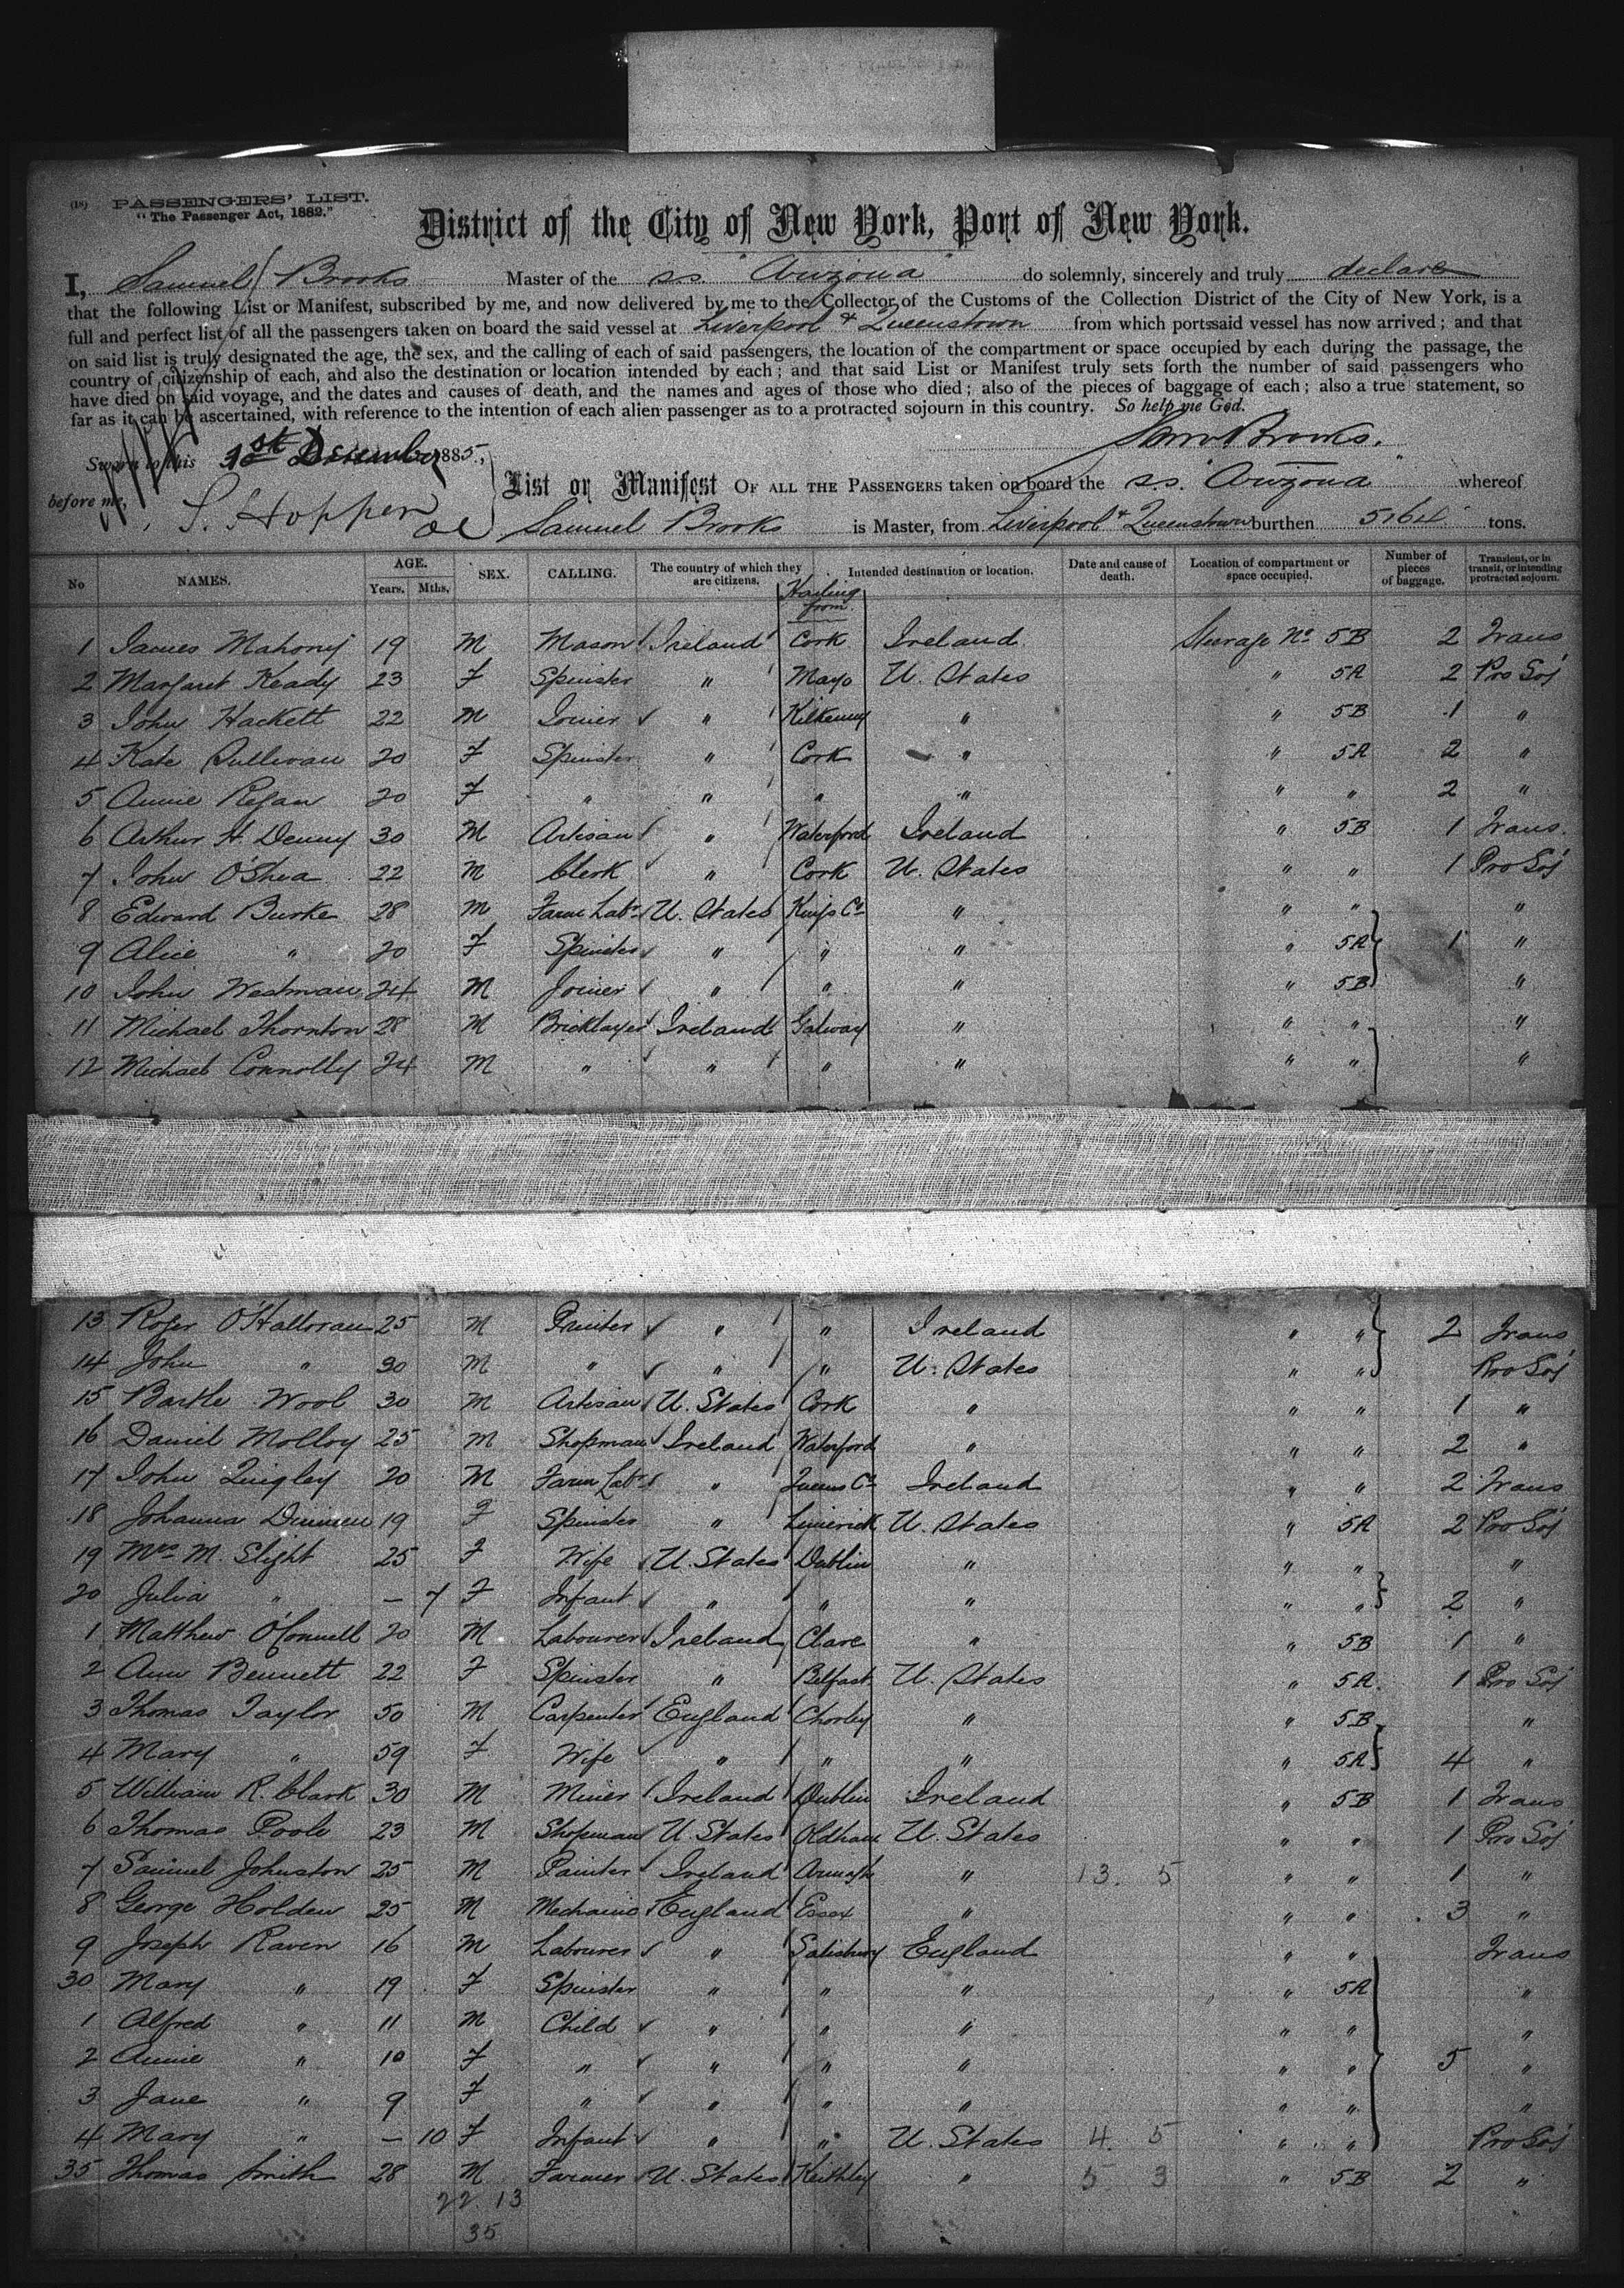 (18) PASSENGERS' LIST.
"The Passenger Act, 1882."
District of the City of New York, Port of New York.
I, Samuel Brooks Master of the s.s. "Arizona" do solemnly, sincerely and truly declare
that the following List or Manifest, subscribed by me, and now delivered by me to the Collector of the Customs of the Collection District of the City of New York, is a
full and perfect list of all the passengers taken on board the said vessel at Liverpool & Queenstown from which port said vessel has now arrived; and that
on said list is truly designated the age, the sex, and the calling of each of said passengers, the location of the compartment or space occupied by each during the passage, the
country of citizenship of each, and also the destination or location intended by each; and that said List or Manifest truly sets forth the number of said passengers who
have died on said voyage, and the dates and causes of death, and the names and ages of those who died; also of the pieces of baggage of each; also a true statement, so
far as it can be ascertained, with reference to the intention of each alien passenger as to a protracted sojourn in this country. So help me God.
Saml Brooks.
Sworn to this 1st December 1885,
before me, S. Hopper
List or Manifest OF ALL THE PASSENGERS taken on board the s.s. "Arizona" whereof
Samuel Brooks is Master, from Liverpool & Queenstown burthen 5164 tons.
No NAMES. AGE. Years. Mths. SEX. CALLING. The country of which they are citizens. Hailing from. Intended destination or location. Date and cause of death. Location of compartment or space occupied. Number of pieces of baggage. Transient, or in transit, or intending protracted sojourn.
1 James Mahony 19 M Mason Ireland Cork Ireland Steerage No 5B 2 Trans
2 Margaret Keady 23 F Spinster " Mayo U. States " 5A 2 Pro Soj
3 John Hackett 22 M Joiner " Kilkenny " " 5B 1 "
4 Kate Sullivan 20 F Spinster " Cork " " 5A 2 "
5 Annie Regan 20 F " " " " " " 2 "
6 Arthur H. Denny 30 M Artisan " Waterford Ireland " 5B 1 Trans.
7 John O'Shea 22 M Clerk " Cork U. States " " 1 Pro Soj
8 Edward Burke 28 M Farm Labr U. States Kings Co " " " "
9 Alice " 20 F Spinster " " " " 5A 1 "
10 John Westman 24 M Joiner " " " " 5B "
11 Michael Thornton 28 M Bricklayer Ireland Galway " " " "
12 Michael Connolly 24 M " " " " " " "
13 Roger O'Halloran 25 M Printer " " Ireland " " 2 Trans
14 John " 30 M " " " U. States " " Pro Soj
15 Bartle Wool 30 M Artisan U. States Cork " " " 1 "
16 Daniel Molloy 25 M Shopman Ireland Waterford " " " 2 "
17 John Quigley 20 M Farm Labr " Queens Co Ireland " " 2 Trans
18 Johanna Dinneen 19 F Spinster " Limerick U. States " 5A 2 Pro Soj
19 Mrs M. Slight 25 F Wife U. States Dublin " " " "
20 Julia " — 7 F Infant " " " " " 2 "
1 Matthew O'Connell 20 M Labourer Ireland Clare " " 5B 1 "
2 Ann Bennett 22 F Spinster " Belfast U. States " 5A. 1 Pro Soj
3 Thomas Taylor 50 M Carpenter England Chorley " " 5B "
4 Mary " 59 F Wife " " " " 5A 4 "
5 William R. Clark 30 M Miner Ireland Dublin Ireland " 5B 1 Trans
6 Thomas Poole 23 M Shopman U. States Oldham U. States " " 1 Pro Soj
7 Samuel Johnston 25 M Painter Ireland Armagh " 13. 5 " " 1 "
8 George Holden 25 M Mechanic England Essex " " " 3 "
9 Joseph Raven 16 M Labourer " Salisbury England " " Trans
30 Mary " 19 F Spinster " " " " 5A "
1 Alfred " 11 M Child " " " " " "
2 Annie " 10 F " " " " " " 5 "
3 Jane " 9 F " " " " " " "
4 Mary " — 10 F Infant " " U. States 4. 5 " " Pro Soj
35 Thomas Smith 28 M Farmer U. States Keithley " 5 3 " 5B 2 "
22. 13
35